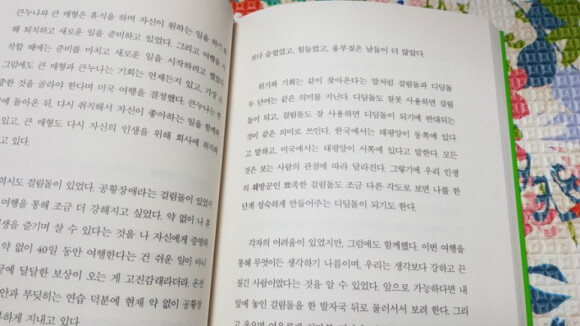 큰누나와 큰 매형은 휴식을 하며 자신이 원하는 일을 하기
해 퇴직하고 새로운 일을 준비하고 있었다. 그리고 여행을
작할 때에는 준비를 마치고 새로운 일을 시작하려고 했었다
그럼에도 큰 매형과 큰누나는 기회는 언제든지 있고, 가장 소
중한 것을 골라야 한다며 미국 여행을 결정했다. 큰누나는 한
에 돌아온 뒤, 다시 취직해서 자신이 좋아하는 일을 함께하
있고, 큰 매형도 다시 자신의 인생을 위해 회사에 취직하
고 있다.
역시도 걸림돌이 있었다. 공황장애라는 걸림돌이 있었지
여행을 통해 조금 더 강해지고 싶었다. 약 없이 나 혼
생을 즐기며 살 수 있다는 것을 나 자신에게 증명하
약 없이 40일 동안 여행한다는 건 쉬운 일이 아니
국에 달달한 보상이 오는 게 고진감래라더라. 온전
안과 부딪히는 연습 덕분에 현재 약 없이 공황장
하게 지내고 있다.
보다 슬펐었고, 힘들었고, 울부짖은 날들이 더 많았다.
위기와 기회는 같이 찾아온다는 말처럼 걸림돌과 디딤돌
두 단어는 같은 의미를 지닌다. 디딤돌도 잘못 사용하면 걸림
돌이 되고, 걸림돌도 잘 사용하면 디딤돌이 되기에 반대되는
것이 같은 의미로 쓰인다. 한국에서는 태평양이 동쪽에 있다
고 말하고, 미국에서는 태평양이 서쪽에 있다고 말한다. 모든
것은 보는 사람의 관점에 따라 달라진다. 그렇기에 우리 인생
의 훼방꾼인 뾰족한 걸림돌도 조금 다른 각도로 보면 나를 한
단계 성숙하게 만들어주는 디딤돌이 되기도 한다.
각자의 어려움이 있었지만, 그럼에도 함께했다. 이번 여행을
통해 무엇이든 생각하기 나름이며, 우리는 생각보다 강하고 끈
질긴 사람이었다는 것을 알 수 있었다. 앞으로 가능하다면 내
앞에 놓인 걸림돌을 한 발자국 뒤로 물러서서 보려 한다. 그리